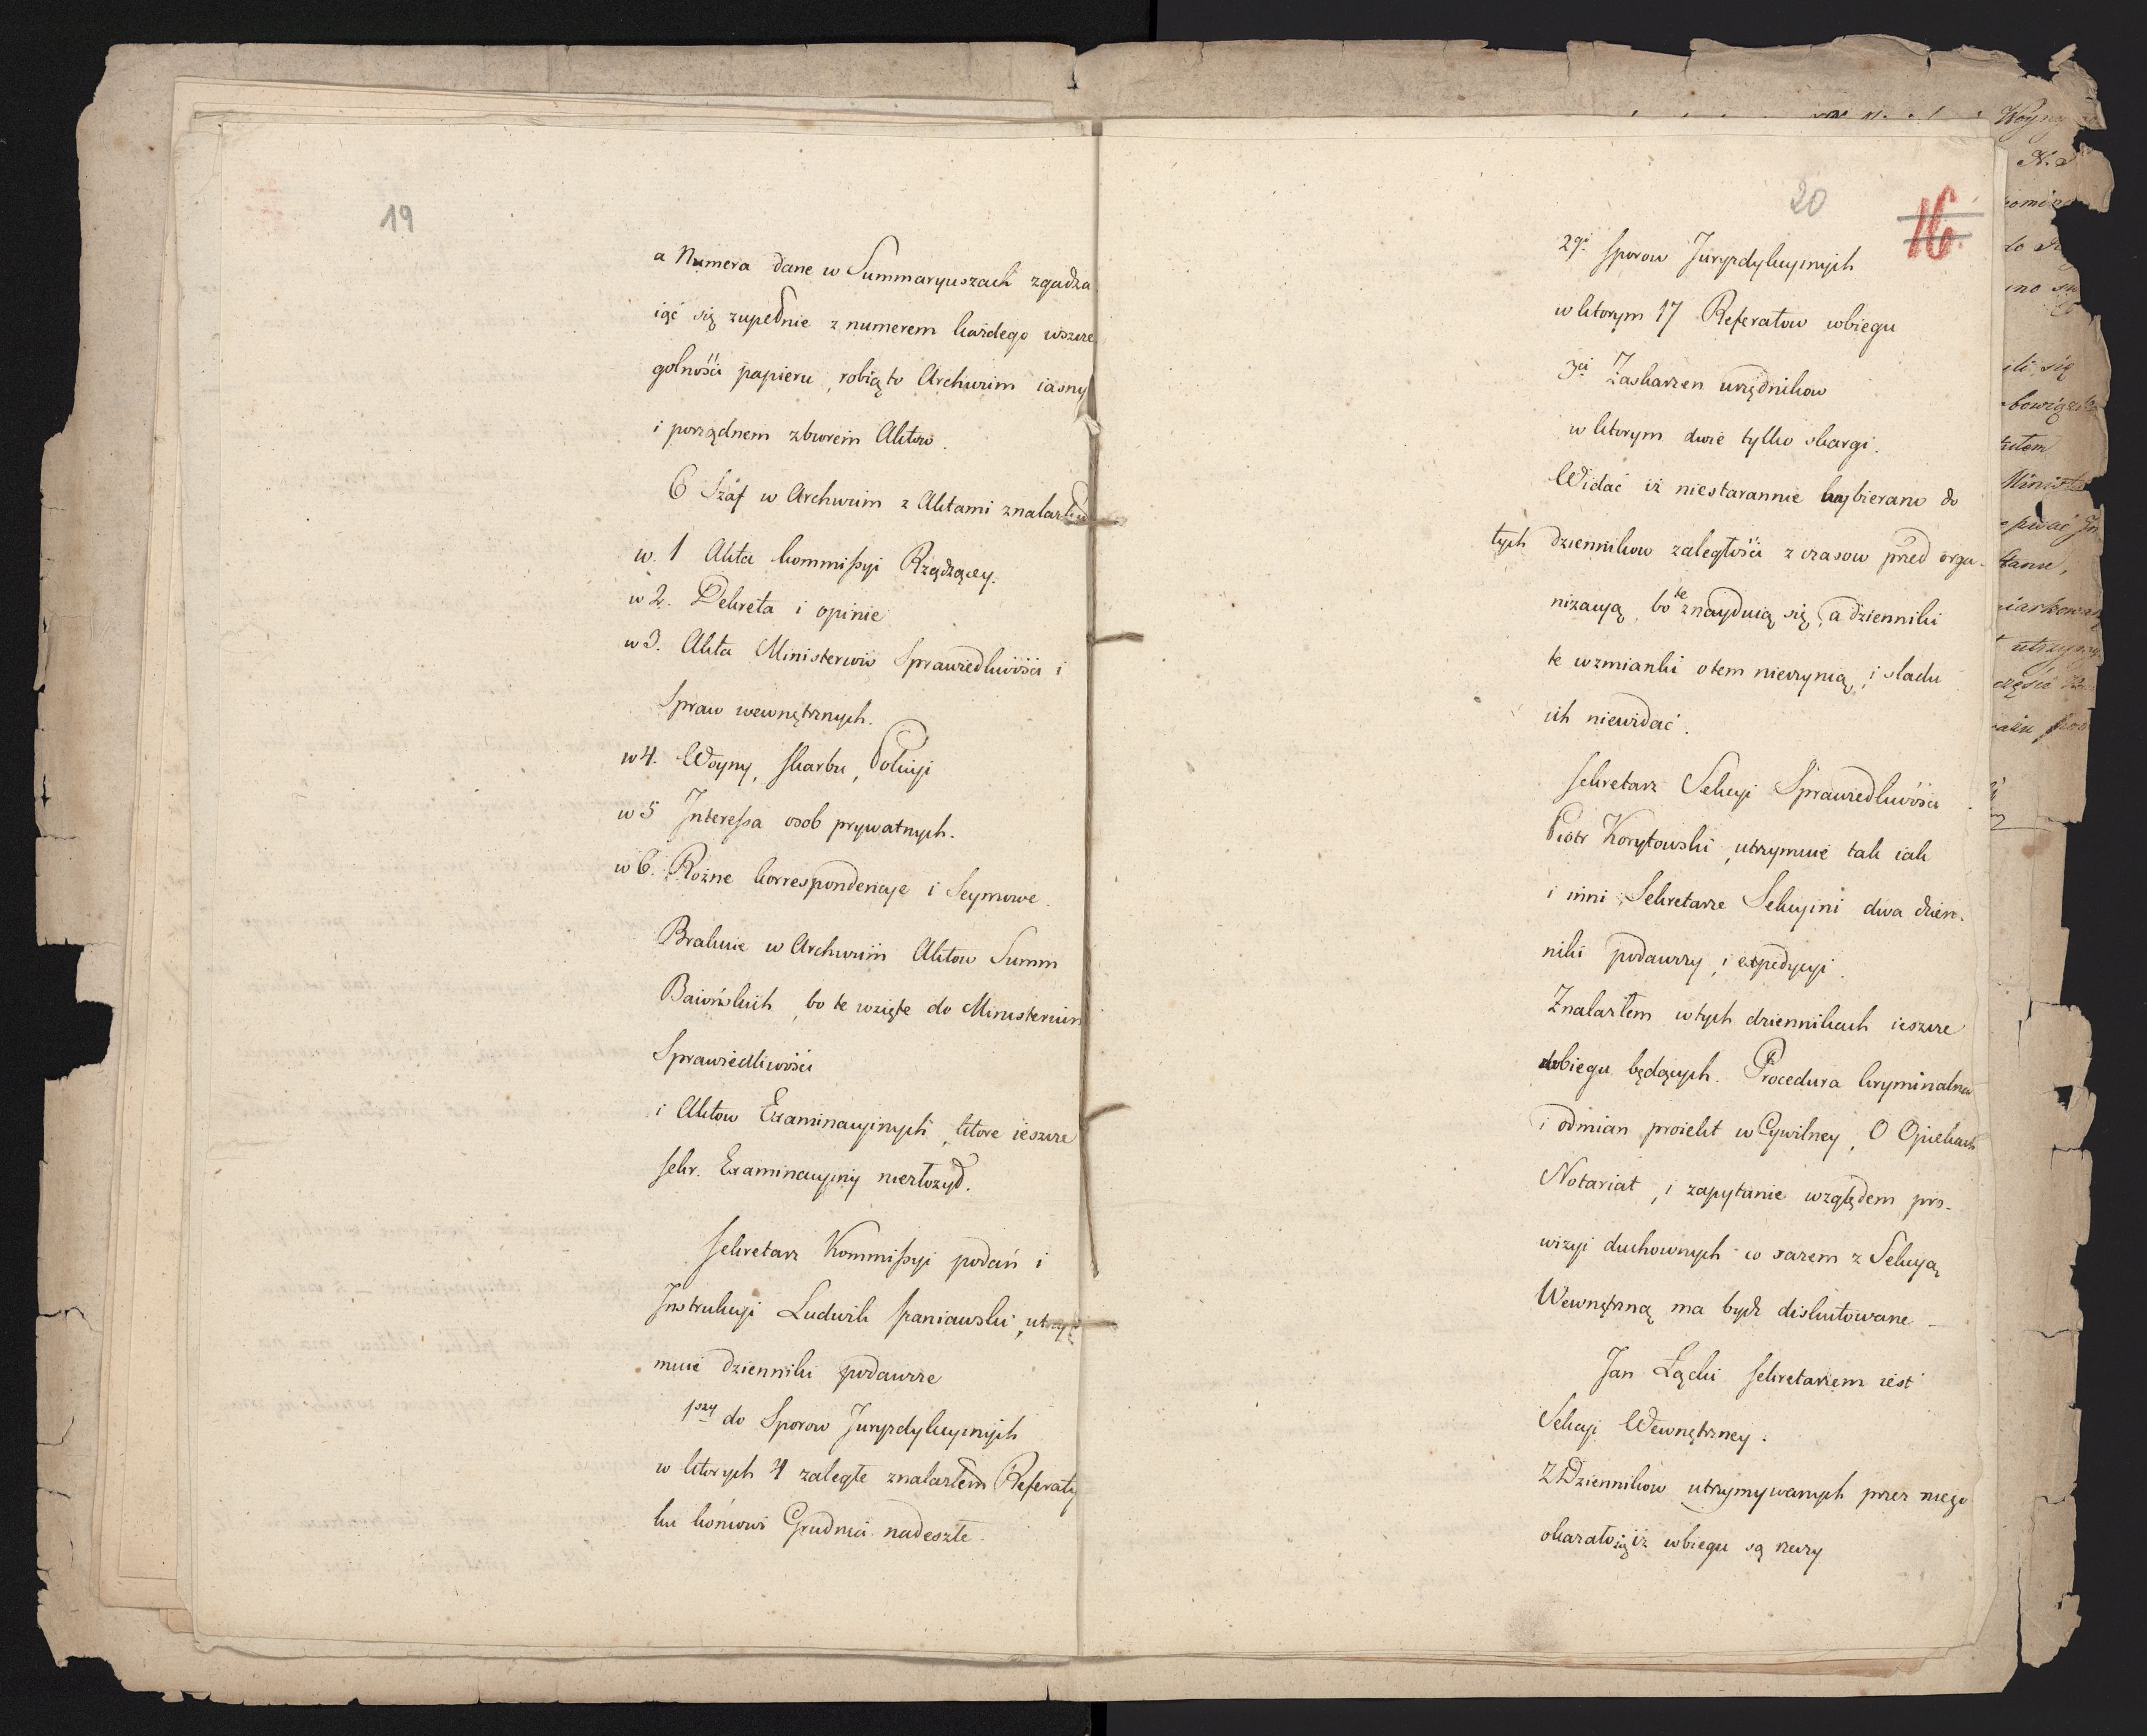 19
a Numera dane w Summaryuszach zgadza
iąc się zupełnie z numerem każdego wszcze
golności papieru, robią to Archiwum iasny
i porządnem zbiorem Aktow.
6 Szaf w Archiwum z Aktami znalazłem
w. 1 Akta kommissyi Rządzącey.
w 2. Dekreta i opinie
w 3. Akta Ministeriow Sprawiedliwości i
Spraw wewnętrznych.
w 4. Woyny, skarbu, Policyi
w 5 Interessa osob prywatnych.
w 6. Rożne korrespondencye i Seymowe.
Brakuie w Archiwum Aktow Summ
Baiońskich, bo te wzięte do Ministerium
Sprawiedliwości
i Aktow Examinacyinych, ktore ieszcze
sekr. Examinacyiny niezłożył.
Sekretarz Kommissyi podań i
Instrukcyi Ludwik Szaniawski, utrzy
muie dzienniki podawcze
1szy do Sporow Juryzdykcyinych
w ktorych 4 zaległe znalazłem Referaty
ku końcowi Grudnia nadeszłe.
20
16.
2gi Sporow Juryzdykcyinych
w ktorym 17 Referatow wbiegu
3ci Zaskarżen urzędnikow
w ktorym dwie tylko skargi.
Widać iż niestarannie wybierano do
tych dziennikow zaległości z czasow przed orga-
nizacyą, bo te znayduią się, a dzienniki
te wzmianki otem nieczynią, i sladu
ich niewidać.
Sekretarz Sekcyi Sprawiedliwości
Piotr Korytowski, utrzymuie tak iak
i inni Sekretarze Sekcyini dwa dzien-
niki podawczy, i expedycyi.
Znalazłem wtych dziennikach ieszcze
wbiegu będących. Procedura kryminalna
i odmian proiekt w Cywilney, O Opiekach
Notariat, i zapytanie względem pro-
wizyi duchownych co razem z Sekcyą
Wewnętrzną ma bydź diskutowane -
Jan Łącki Sekretarzem iest
Sekcyi Wewnętrzney.
Z Dziennikow utrzymywanych przez niego
okazało się iż wbiegu są rzeczy